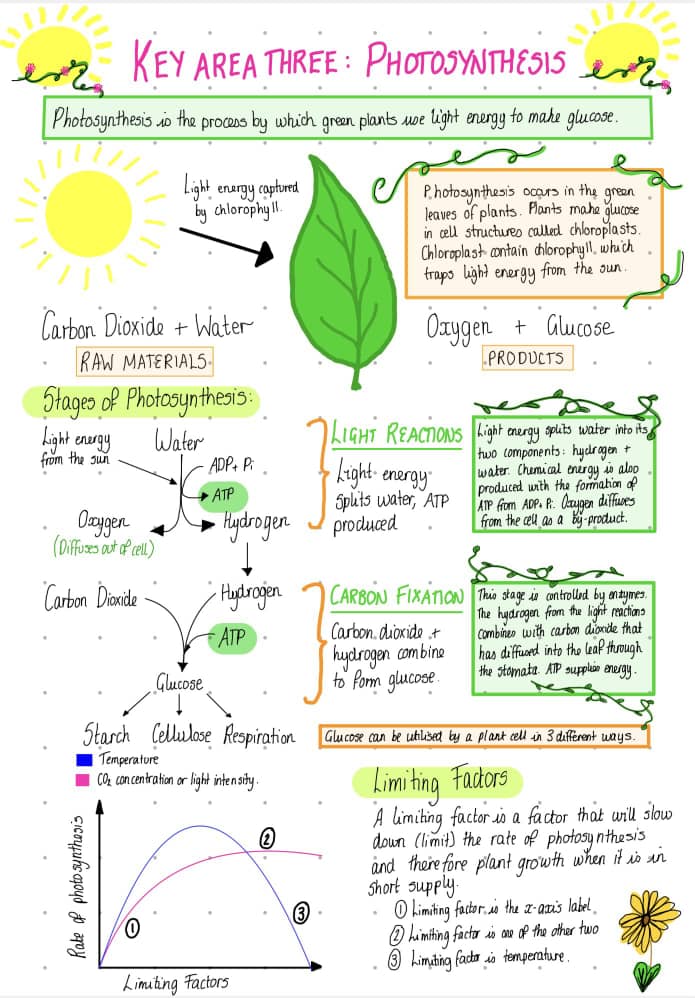 KEY AREA THREE: PHOTOSYNTHESIS
Photosynthesis is the process by which green plants use light energy to make glucose.
Light energy captured
by chlorophyll.
Photosynthesis occurs in the green
leaves of plants. Plants make glucose
in cell structures called chloroplasts.
Chloroplast contain chlorophyll, which
traps light energy from the sun.
Carbon Dioxide + Water
RAW MATERIALS
Oxygen + Glucose
PRODUCTS
Stages of Photosynthesis:
Light energy
from the sun
Water
ADP + Pi
ATP
Oxygen
(Diffuses out of cell)
Hydrogen
LIGHT REACTIONS
Light energy
splits water, ATP
produced
Light energy splits water into its
two components: hydrogen +
water. Chemical energy is also
produced with the formation of
ATP from ADP + Pi. Oxygen diffuses
from the cell as a by-product.
Carbon Dioxide
Hydrogen
ATP
Glucose
CARBON FIXATION
Carbon dioxide +
hydrogen combine
to form glucose.
This stage is controlled by enzymes.
The hydrogen from the light reactions
combines with carbon dioxide that
has diffused into the leaf through
the stomata. ATP supplies energy.
Starch Cellulose Respiration
Glucose can be utilised by a plant cell in 3 different ways.
Temperature
CO₂ concentration or light intensity.
Rate of photosynthesis
①
②
③
Limiting Factors
Limiting Factors
A limiting factor is a factor that will slow
down (limit) the rate of photosynthesis
and therefore plant growth when it is in
short supply.
① Limiting factor is the x-axis label.
② Limiting factor is one of the other two
③ Limiting factor is temperature.